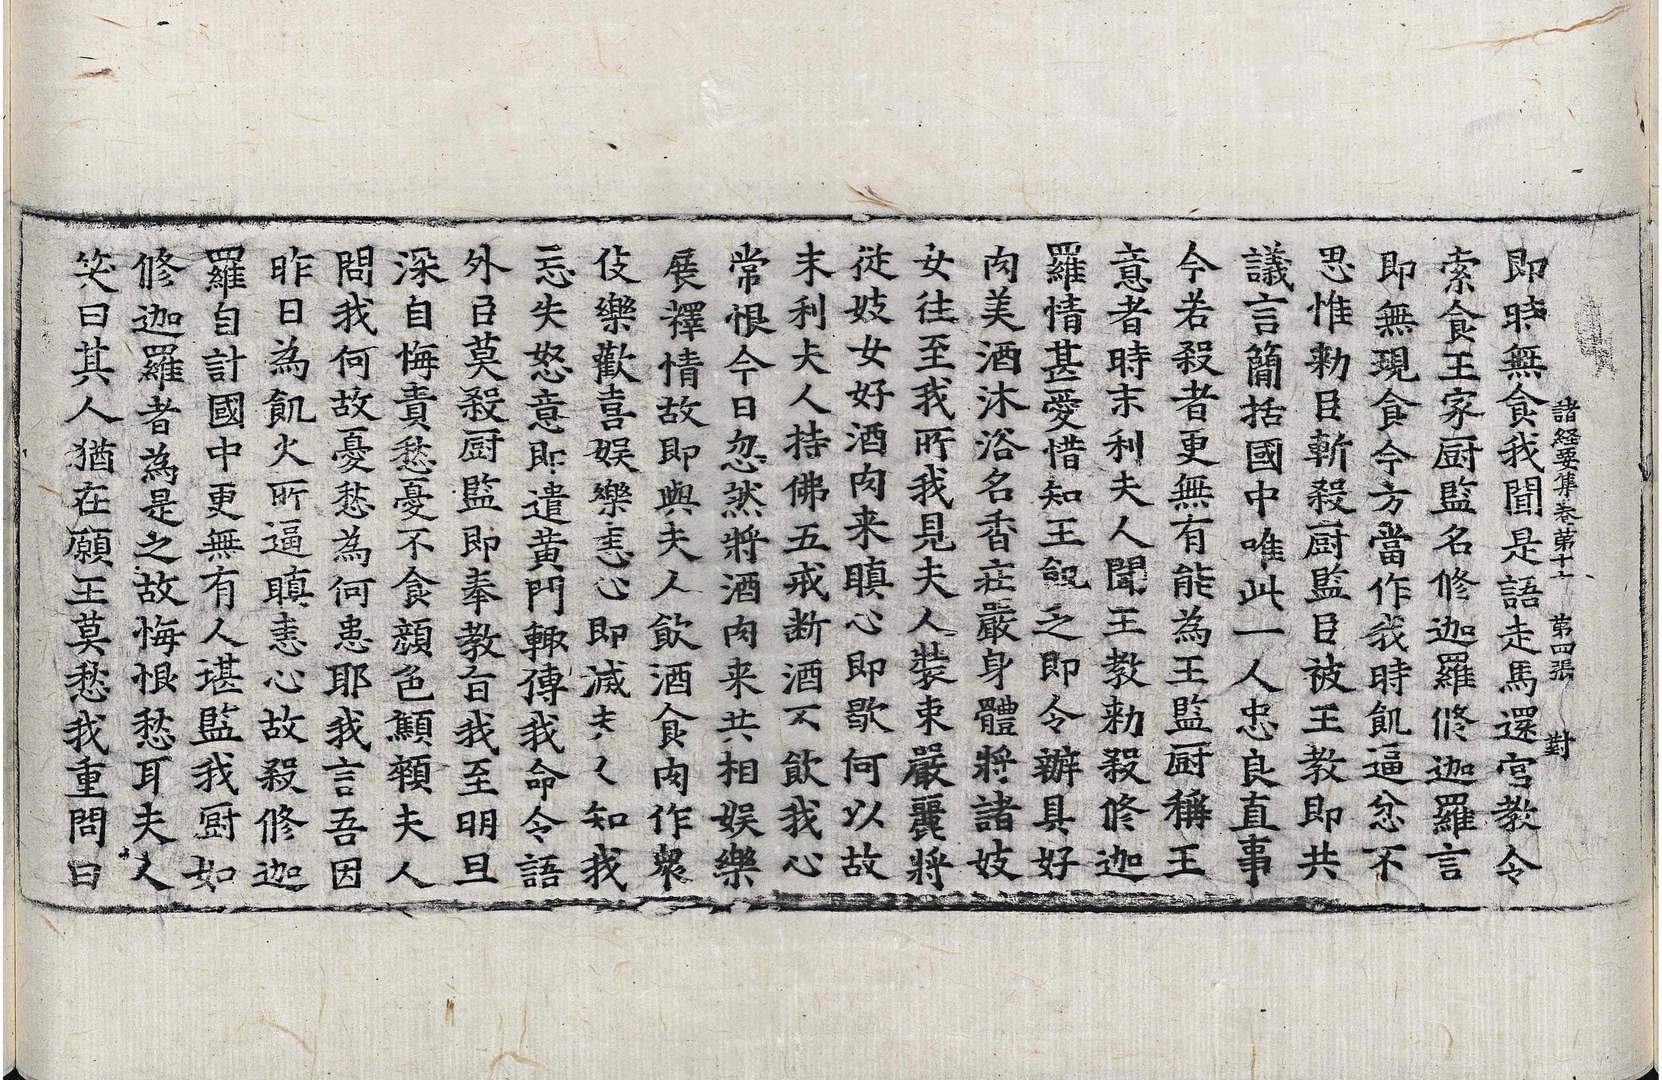 諸經要集卷第十七　第四張　對
即時無食我聞是語走馬還宮教令
索食王家厨監名修迦羅修迦羅言
即無現食今方當作我時飢逼忿不
思惟勅臣斬殺厨監臣被王教即共
議言簡括國中唯此一人忠良直事
今若殺者更無有能為王監厨稱王
意者時末利夫人聞王教勅殺修迦
羅情甚愛惜知王飢乏即令辦具好
肉美酒沐浴名香莊嚴身體將諸妓
女往至我所我見夫人裝束嚴麗將
從妓女好酒肉来瞋心即歇何以故
末利夫人持佛五戒断酒不飲我心
常恨今日忽然將酒肉来共相娱樂
展釋情故即與夫人飲酒食肉作衆
伎樂歡喜娱樂恚心即滅夫人知我
忘失怒意即遣黃門輙傳我命令語
外臣莫殺厨監即奉教旨我至明旦
深自悔責愁憂不食顔色顦顇夫人
問我何故憂愁為何患耶我言吾因
昨日為飢火所逼瞋恚心故殺修迦
羅自計國中更無有人堪監我厨如
修迦羅者為是之故悔恨愁耳夫人
笑曰其人猶在願王莫愁我重問曰